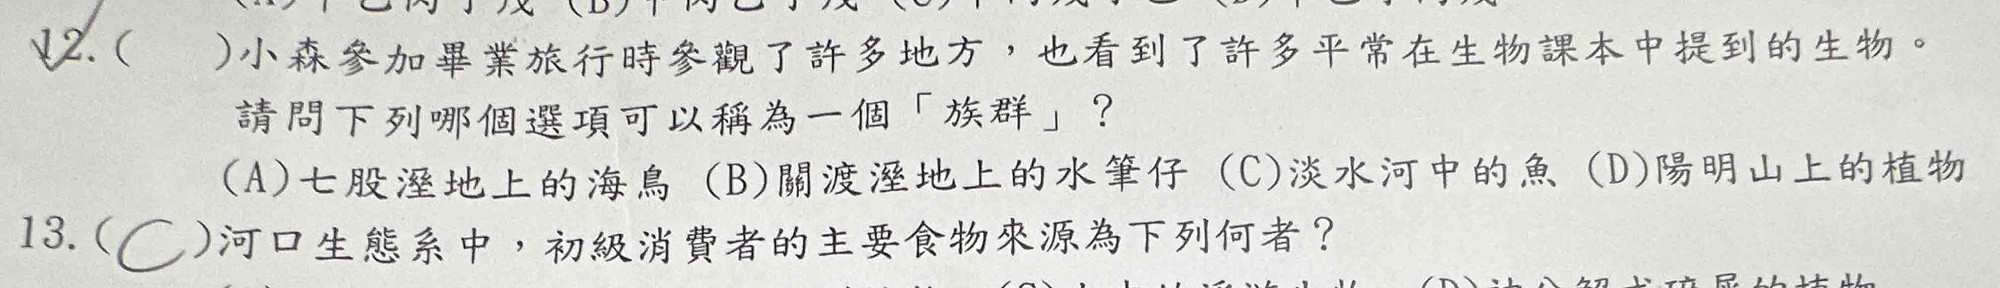 12.(　　)小森參加畢業旅行時參觀了許多地方，也看到了許多平常在生物課本中提到的生物。
請問下列哪個選項可以稱為一個「族群」？
(A)七股溼地上的海鳥 (B)關渡溼地上的水筆仔 (C)淡水河中的魚 (D)陽明山上的植物
13.(C)河口生態系中，初級消費者的主要食物來源為下列何者？